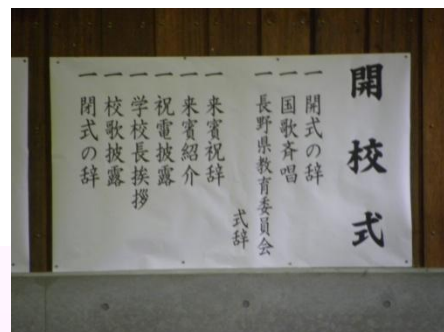 開校式
一 開式の辞
一 国歌斉唱
一 長野県教育委員会
式辞
一 来賓祝辞
一 来賓紹介
一 祝電披露
一 学校長挨拶
一 校歌披露
一 閉式の辞